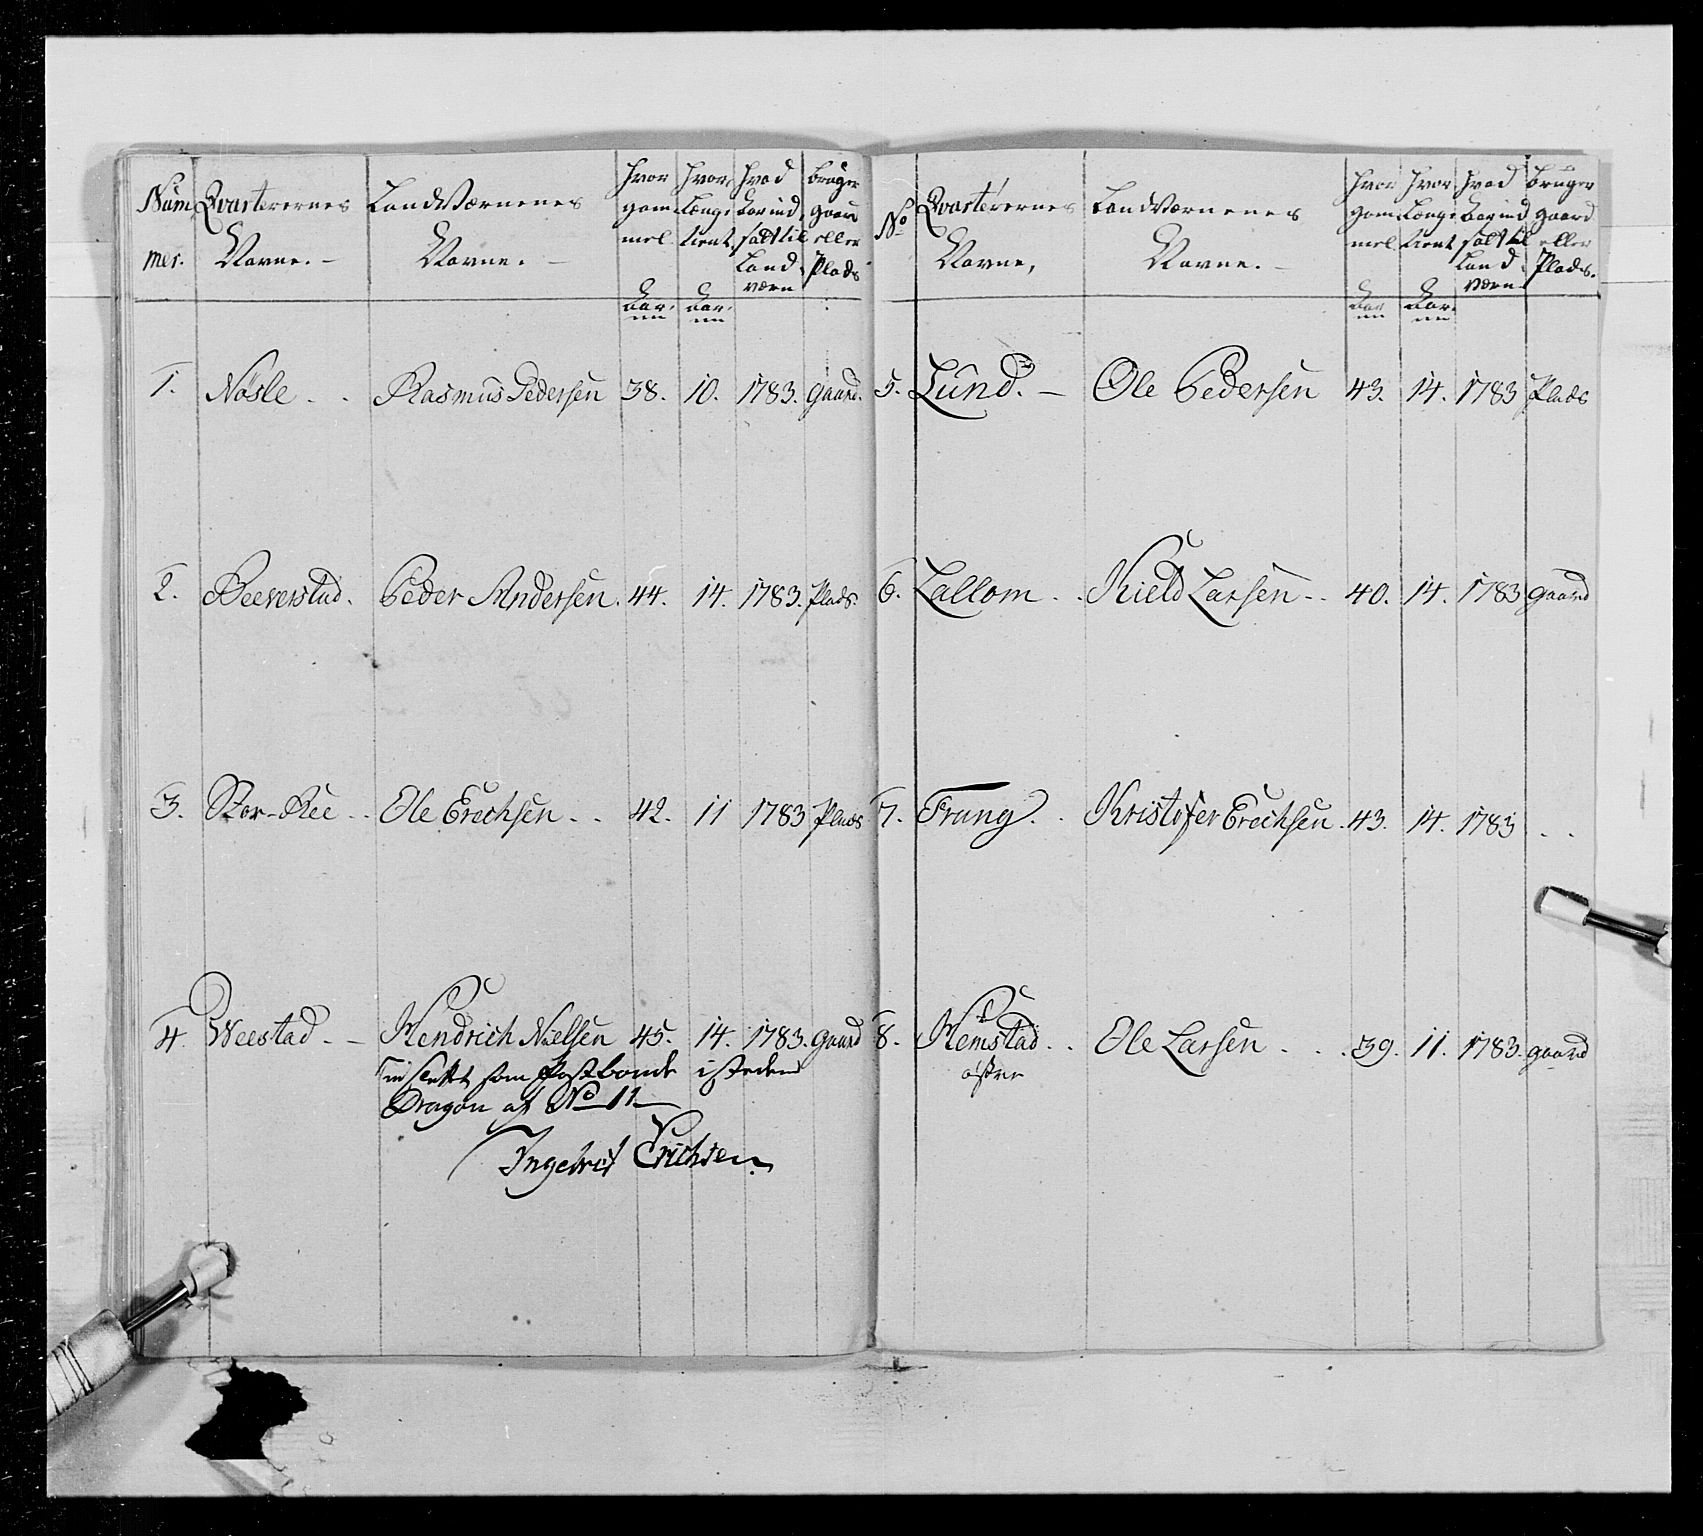 Num
mer.
Qvarterernes
Navne. –
LandVærnenes
Navne. –
hvor
gam
mel.
Aar.
hvor
Længe
tient
Aar.
hvad
Aar ind
sadt til
Land
værn
bruger
gaard
eller
Plads
1. Nøsle . . Rasmus Pedersen 38. 10. 1783. gaard.
2. Beeverstad. Peder Andersen. 44. 14. 1783. Plads.
3. Stor-Ree . . Ole Erechsen . . 42. 11 1783 Plads
4. Weestad . – Hendrich Nielsen 45. 14. 1783. gaard
som Postbonde isteden
Dragon af No 11
Ingebret Erichsen.
No
Qvarterernes
Navne,
LandVærnenes
Navne. –
hvor
gam
mel
Aar
hvor
Længe
tient
Aar.
hvad
Aar ind
sadt til
Land
værn
bruger
gaard
eller
Plads.
5. Lund. – Ole Pedersen 43. 14. 1783 Plads
6. Lallom . . Kield Larsen . . 40. 14. 1783 gaard
7. Frang . . Kristofer Erechsen . 43. 14. 1783 . .
8. Hemstad . . Ole Larsen . . . 39. 11. 1783. gaard
østre